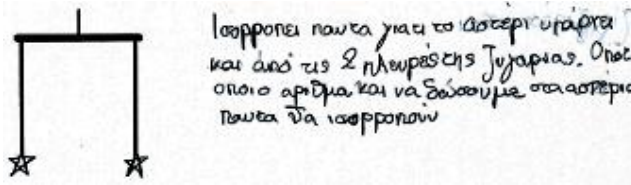 Ισορροπεί παντα γιατι το αστέρι υπάρχει
και από τις 2 πλευρές της ζυγαριας. Οποτ
οποιο αριθμο και να δώσουμε στα αστέρια
παντα θα ισορροπούν